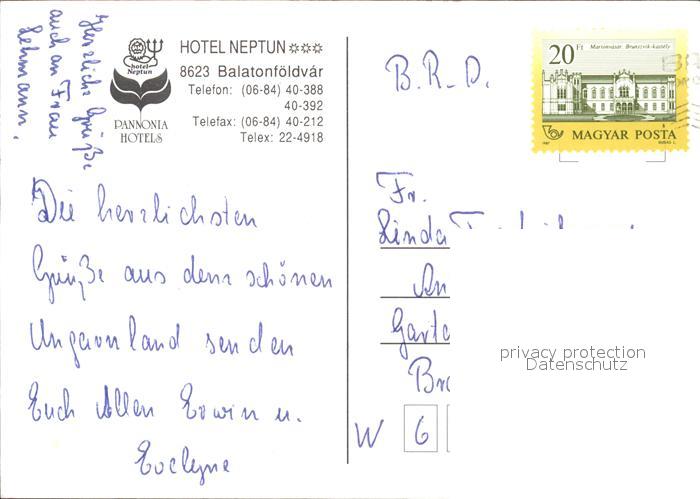 Herzliche Grüße
auch an Frau
Lehmann.
hotel
Neptun
PANNONIA
HOTELS
HOTEL NEPTUN ☼☼☼
8623 Balatonföldvár
Telefon: (06-84) 40-388
40-392
Telefax: (06-84) 40-212
Telex: 22-4918
Die herzlichsten
Grüße aus dem schönen
Ungarnland senden
Euch Allen Erwin u.
Evelyne
B.R.D.
20 Ft
Martonvásár Brunszvik-kastély
MAGYAR POSTA
1987
Fr.
Linda
An
Garte
Bra
W 6
privacy protection
Datenschutz